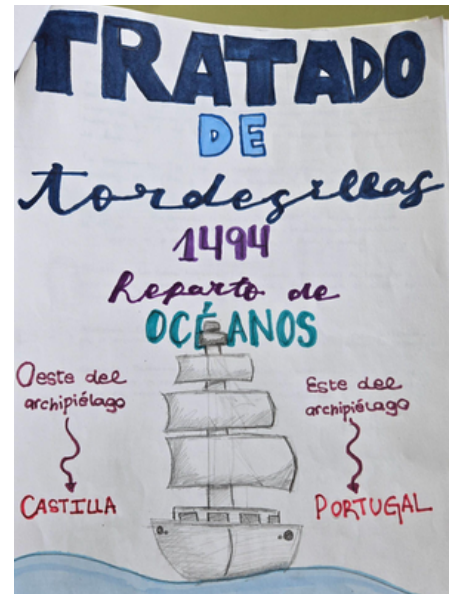 TRATADO
DE
tordesillas
1494
Reparto de
OCÉANOS
Oeste del
archipiélago
CASTILLA
Este del
archipiélago
PORTUGAL